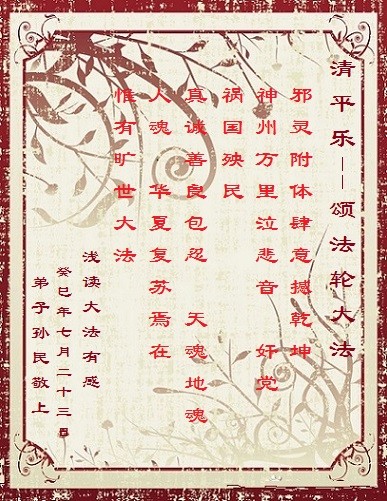 清平乐——颂法轮大法
邪灵附体肆意撼乾坤
神州万里泣悲音 奸党
祸国殃民
真诚善良包忍 天魂地魂
人魂 华夏复苏焉在
惟有旷世大法
浅读大法有感
癸巳年七月二十三日
弟子孙民敬上